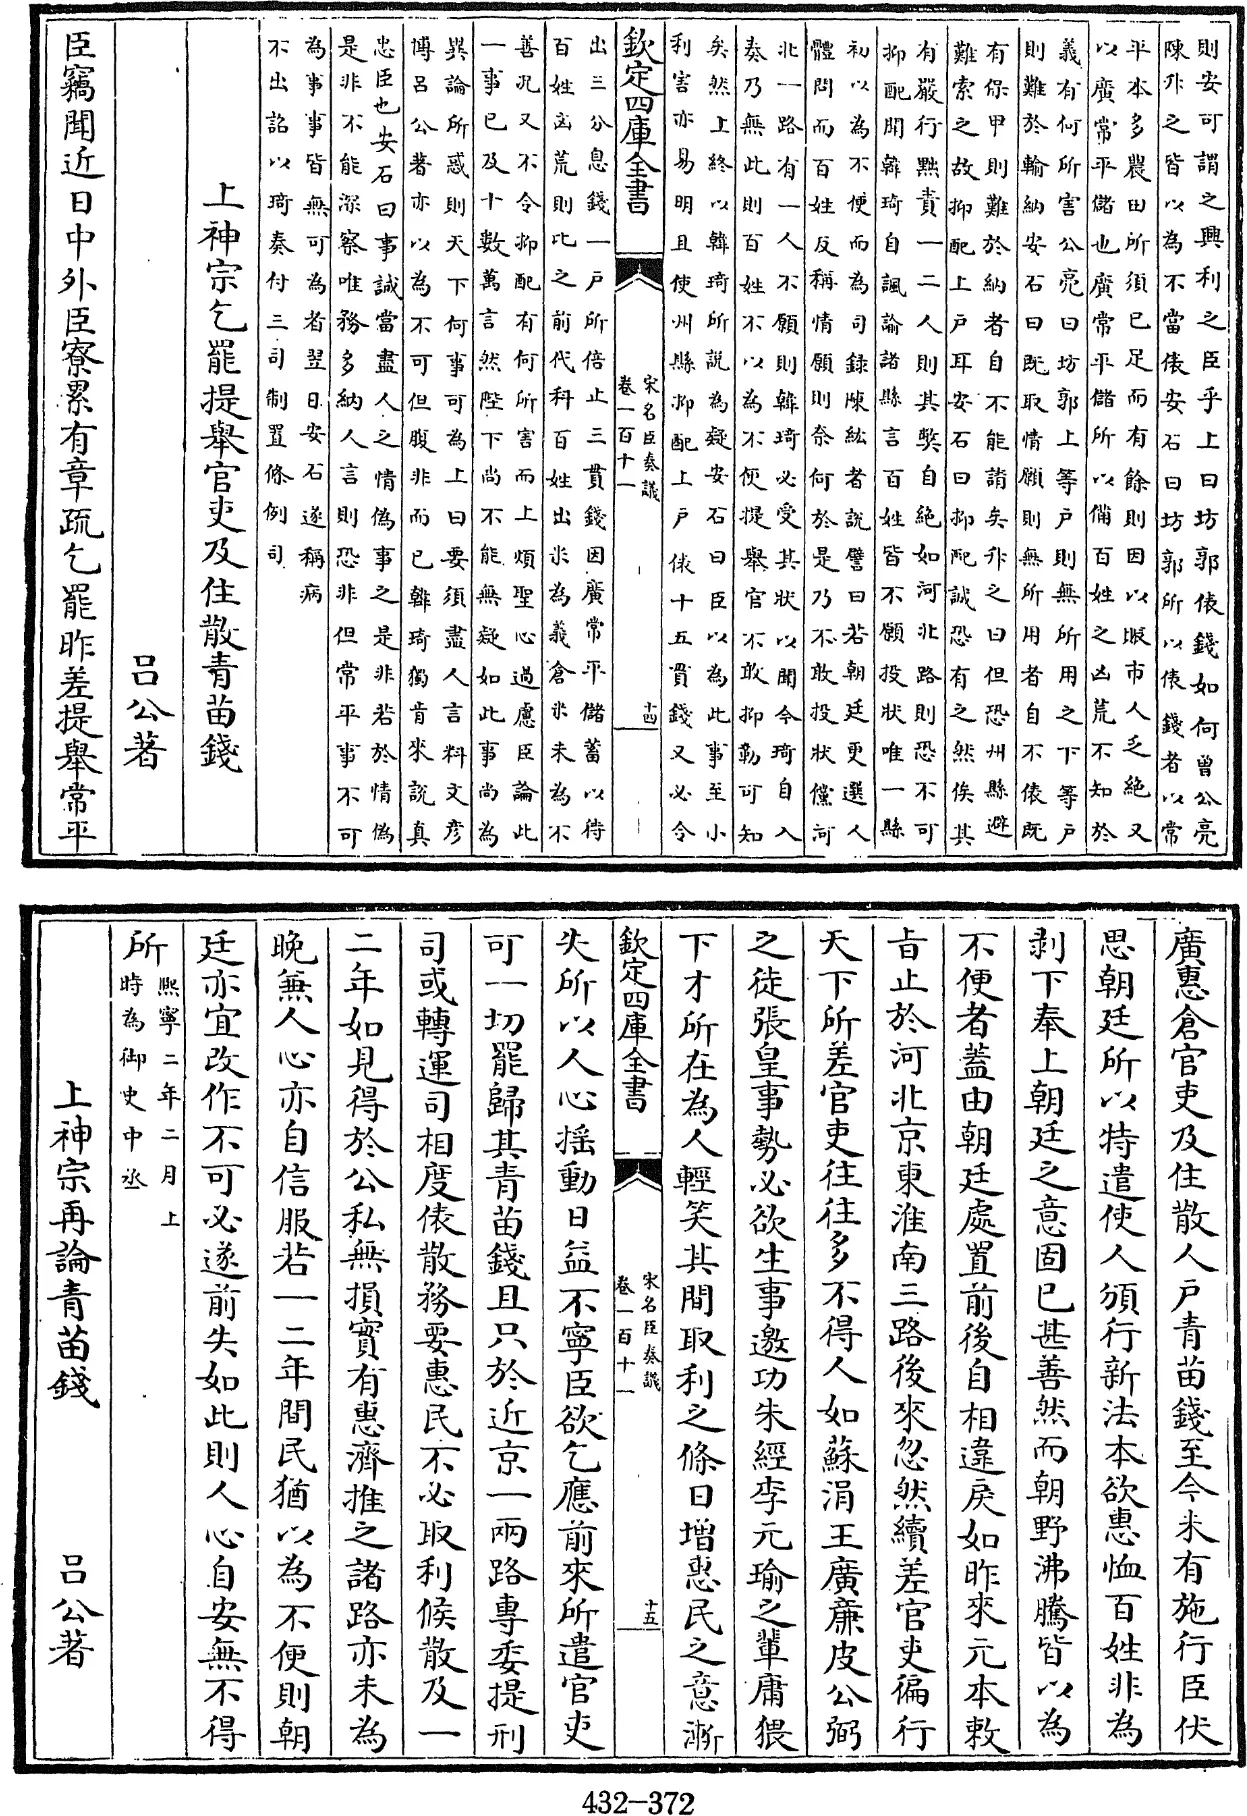 則安可謂之興利之臣乎上曰坊郭俵錢如何曾公亮
陳升之皆以為不當俵安石曰坊郭所以俵錢者以常
平本多農田所須已足而有餘則因以賑市人乏絶又
以廣常平儲也廣常平儲所以備百姓之凶荒不知於
義有何所害公亮曰坊郭上等戶則無所用之下等戶
則難於輸納安石曰既取情願則無所用者自不俵既
有保甲則難於納者自不能請矣升之曰但恐州縣避
難索之故抑配上戶耳安石曰抑配誠恐有之然俟其
有嚴行黜責一二人則其弊自絶如河北路則恐不可
抑配聞韓琦自諷諭諸縣言百姓皆不願投狀唯一縣
初以為不便而為司錄陳紘者説譬曰若朝廷更選人
體問而百姓反稱情願則奈何於是乃不敢投狀儻河
北一路有一人不願則韓琦必受其狀以聞今琦自入
奏乃無此則百姓不以為不便提舉官不敢抑勒可知
矣然上終以韓琦所説為疑安石曰臣以為此事至小
利害亦易明且使州縣抑配上戶俵十五貫錢又必令
欽定四庫全書
宋名臣奏議
卷一百十一
十四
出三分息錢一戶所倍止三貫錢因廣常平儲蓄以待
百姓凶荒則比之前代科百姓出米為義倉米未為不
善况又不令抑配有何所害而上煩聖心過慮臣論此
一事已及十數萬言然陛下尚不能無疑如此事尚為
異論所惑則天下何事可為上曰要須盡人言料文彦
博呂公著亦以為不可但腹非而已韓琦獨肯來説真
忠臣也安石曰事誠當盡人之情偽事之是非若於情偽
是非不能深察唯務多納人言則恐非但常平事不可
為事事皆無可為者翌日安石遂稱病
不出詔以琦奏付三司制置條例司
上神宗乞罷提舉官吏及住散青苗錢
呂公著
臣竊聞近日中外臣寮累有章疏乞罷昨差提舉常平
廣惠倉官吏及住散人戶青苗錢至今未有施行臣伏
思朝廷所以特遣使人頒行新法本欲惠恤百姓非為
剥下奉上朝廷之意固已甚善然而朝野沸騰皆以為
不便者蓋由朝廷處置前後自相違戾如昨來元本敕
旨止於河北京東淮南三路後來忽然續差官吏徧行
天下所差官吏往往多不得人如蘇涓王廣廉皮公弼
之徒張皇事勢必欲生事邀功朱經李元瑜之輩庸猥
下才所在為人輕笑其間取利之條日增惠民之意漸
欽定四庫全書
宋名臣奏議
卷一百十一
十五
失所以人心搖動日益不寧臣欲乞應前來所遣官吏
可一切罷歸其青苗錢且只於近京一兩路專委提刑
司或轉運司相度俵散務要惠民不必取利候散及一
二年如見得於公私無損實有惠濟推之諸路亦未為
晚兼人心亦自信服若一二年間民猶以為不便則朝
廷亦宜改作不可必遂前失如此則人心自安無不得
所
熙寧二年二月上
時為御史中丞
上神宗再論青苗錢
呂公著
432-372